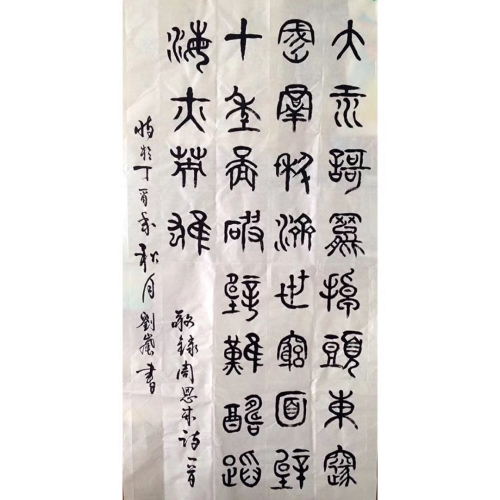 大江謌罷掉頭東邃
密羣科濟世窮面壁
十年圖破壁難酬蹈
海亦英雄
敬錄周恩來詩一首
時於丁酉秋月劉書